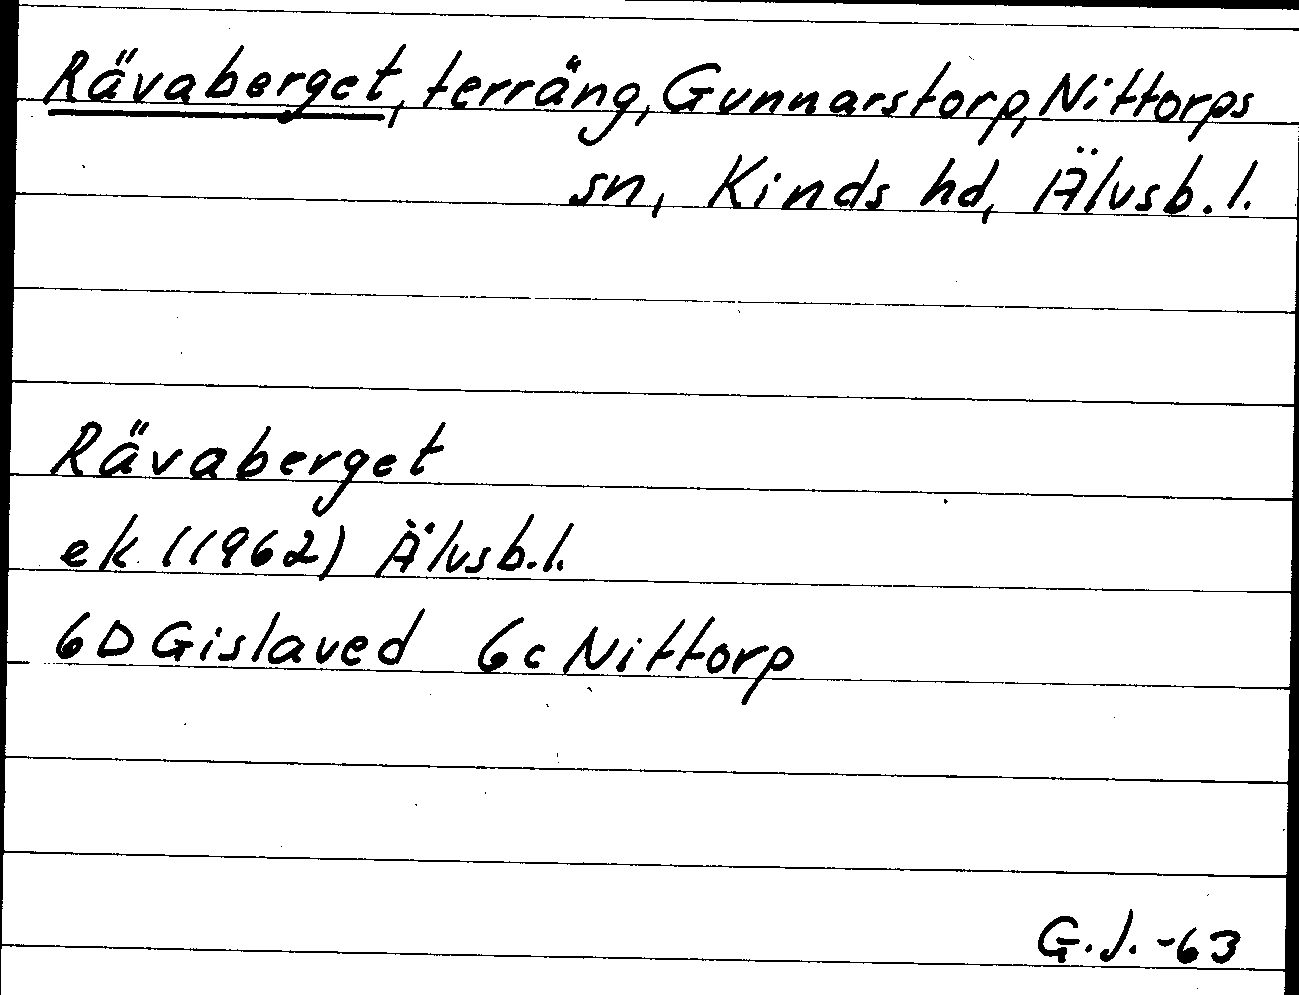 Rävaberget, terräng, Gunnarstorp, Nittorps
sn, Kinds hd, Älvsb. l.
Rävaberget
ek (1962) Älvsb. l.
6D Gislaved 6c Nittorp
G. J. -63